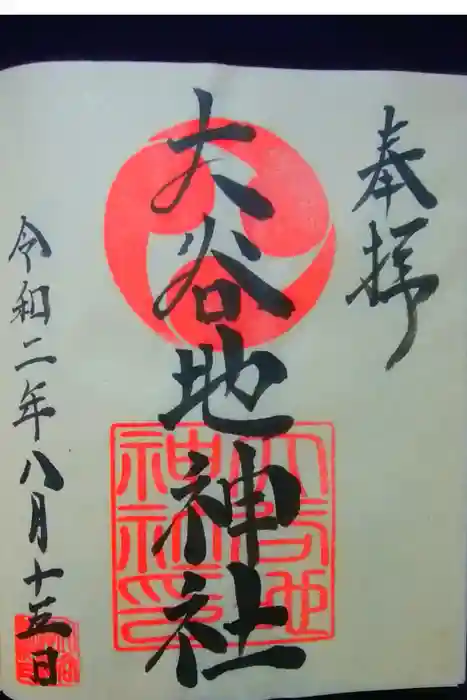 奉拝
大谷地神社
令和二年八月十五日